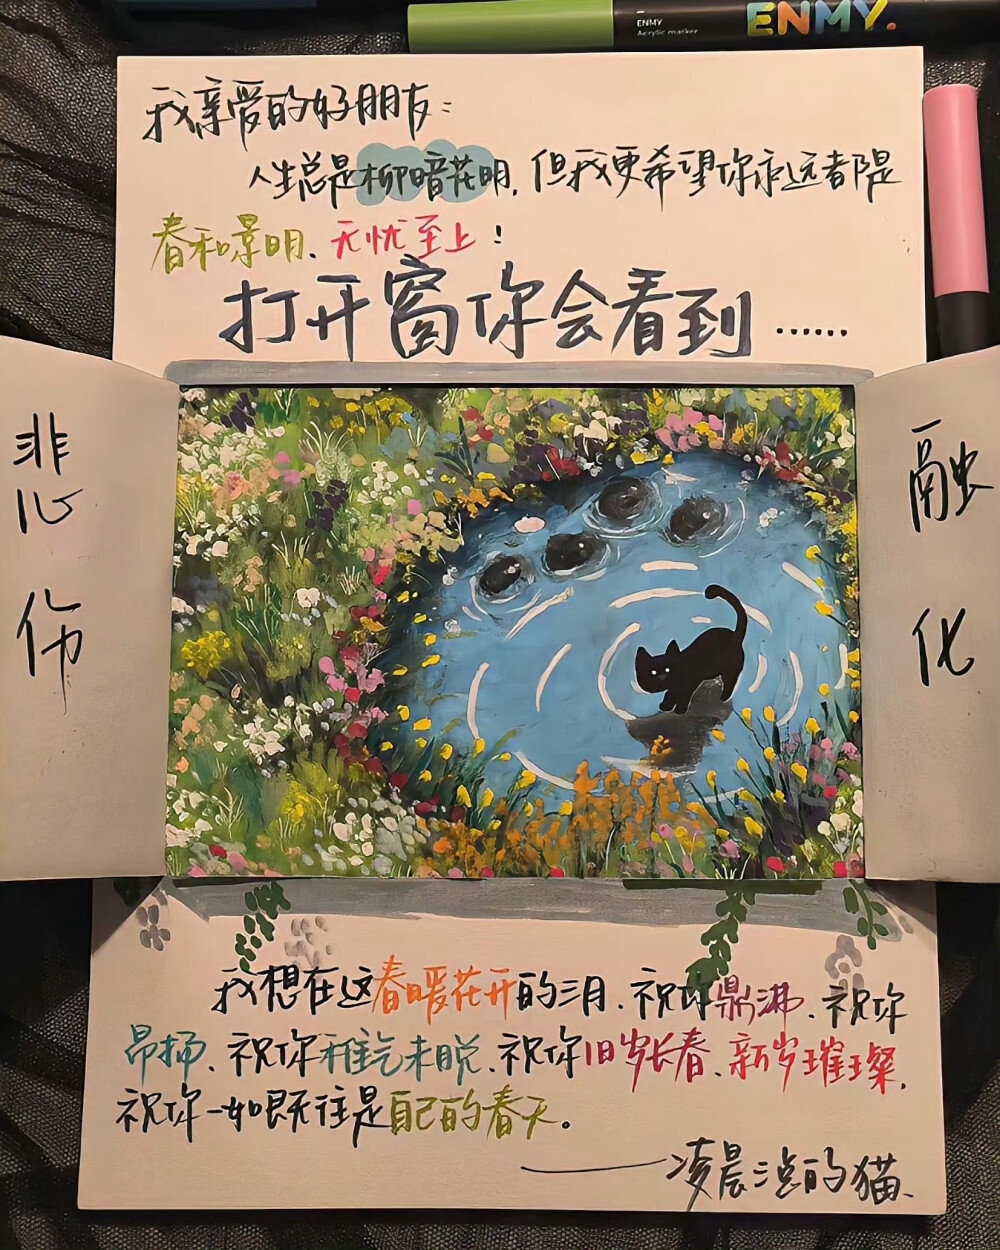 ENMY
Acrylic marker
ENMY.
我亲爱的好朋友：
人生总是柳暗花明，但我更希望你永远都是
春和景明、无忧至上！
打开窗你会看到……
悲伤
融化
我想在这春暖花开的三月、祝你鼎沸、祝你
昂扬、祝你稚气未脱、祝你旧岁长春、新岁璀璨，
祝你一如既往是自己的春天。
——凌晨三点的猫、